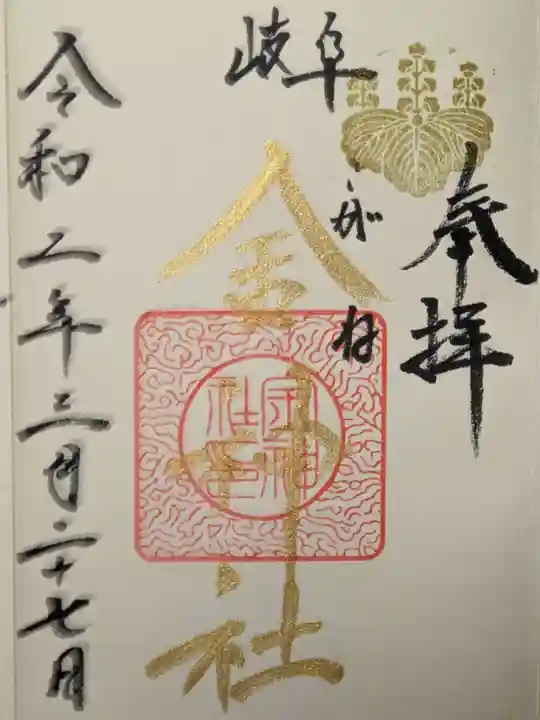 奉拝
岐阜
こがね
金神社
金神社印
令和二年三月二十七日